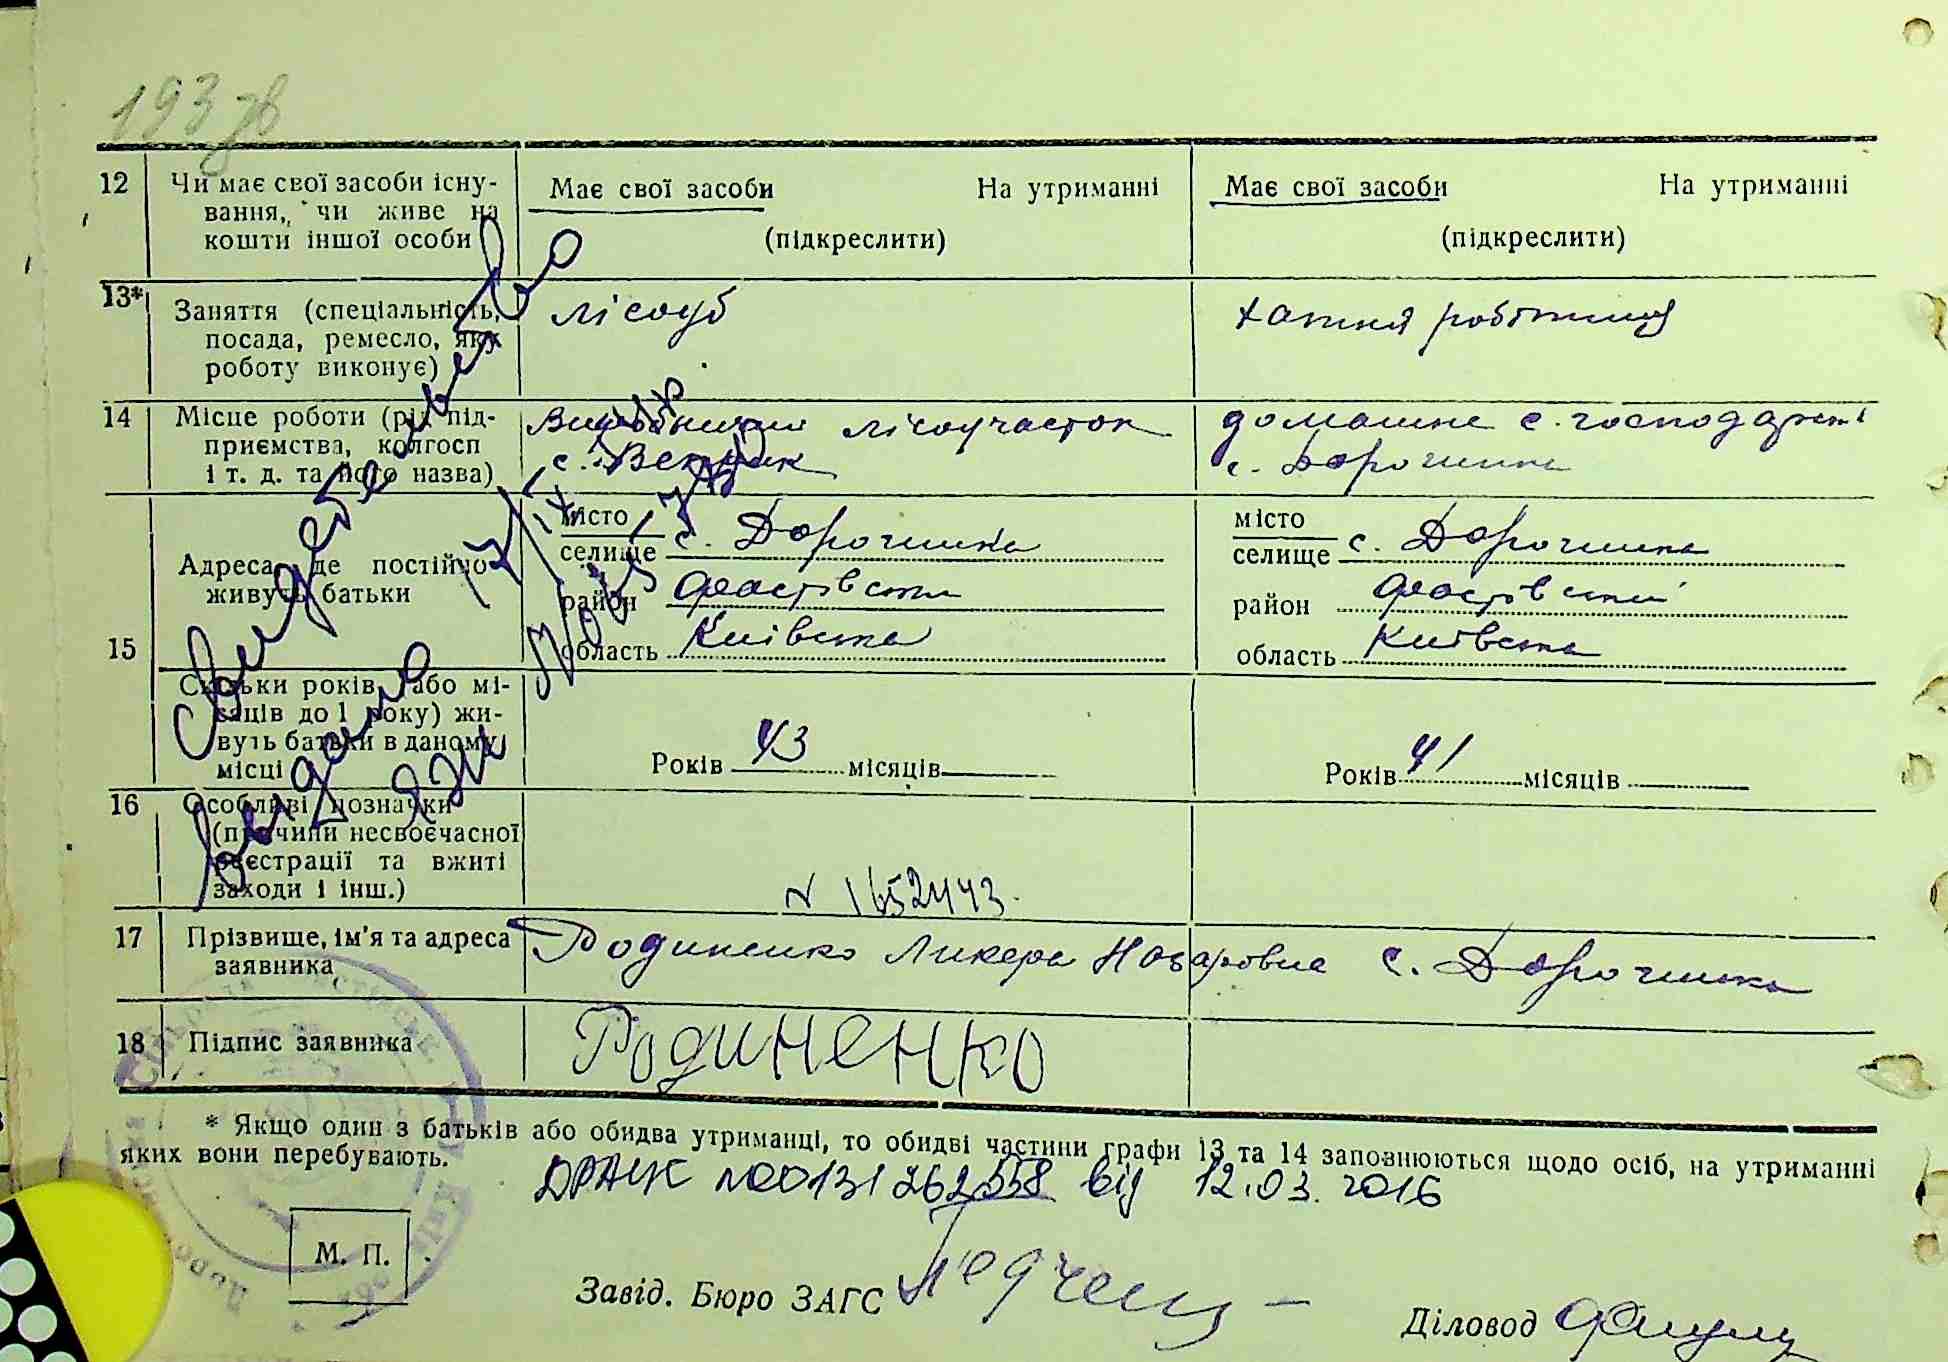 193 зв
12 Чи має свої засоби існу- Має свої засоби На утриманні Має свої засоби На утриманні
вання, чи живе на
кошти іншої особи (підкреслити) (підкреслити)
13* Заняття (спеціальність, лісоруб хатня робітниця
посада, ремесло, яку
роботу виконує)
14 Місце роботи (рід під- лісоучасток домашнє с. господарстві
приємства, колгосп с. с. Дорогинка
і т. д. та його назва)
15 Адреса, де постійно живуть батьки
місто місто
селище с. Дорогинка селище с. Дорогинка
район Фастівський район Фастівський
область Київська область Київська
Скільки років (або мі-
сяців до 1 року) жи-
вуть батьки в даному
місці Років 43 місяців Років 41 місяців
16 Особливі позначки
(причини несвоєчасної
реєстрації та вжиті
заходи і інш.) N 1652443.
Свидетельство
выдано
17 Прізвище, ім'я та адреса Родиненко Ликера Назаровна с. Дорогинка
заявника
18 Підпис заявника Родиненко
* Якщо один з батьків або обидва утриманці, то обидві частини графи 13 та 14 заповнюються щодо осіб, на утриманні
яких вони перебувають.
ДРАЦС №00131262558 від 12.03.2016
М. П.
Завід. Бюро ЗАГС
Діловод